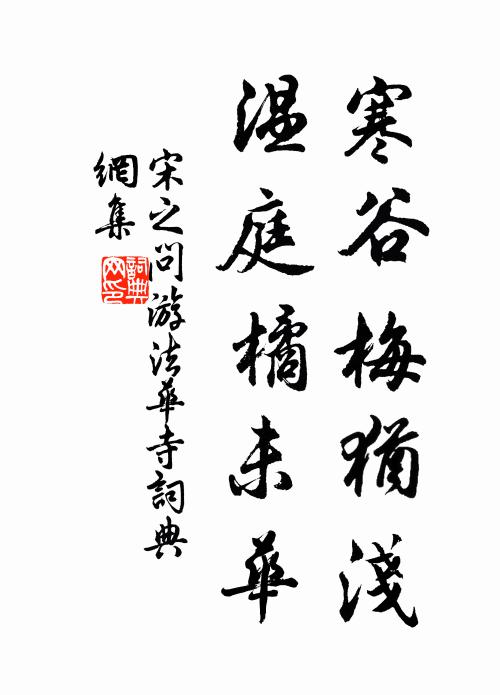 寒谷梅猶淺
温庭橘未華
宋之问游法華寺詞典
網集
詞典網印